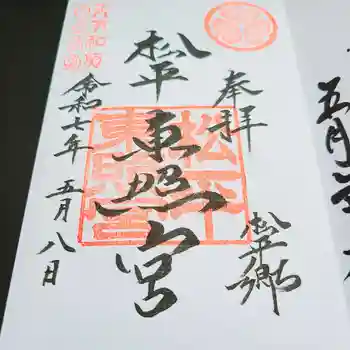 奉拝
松平郷
松平東照宮
松平東照宮
令和七年
五月八日
五月